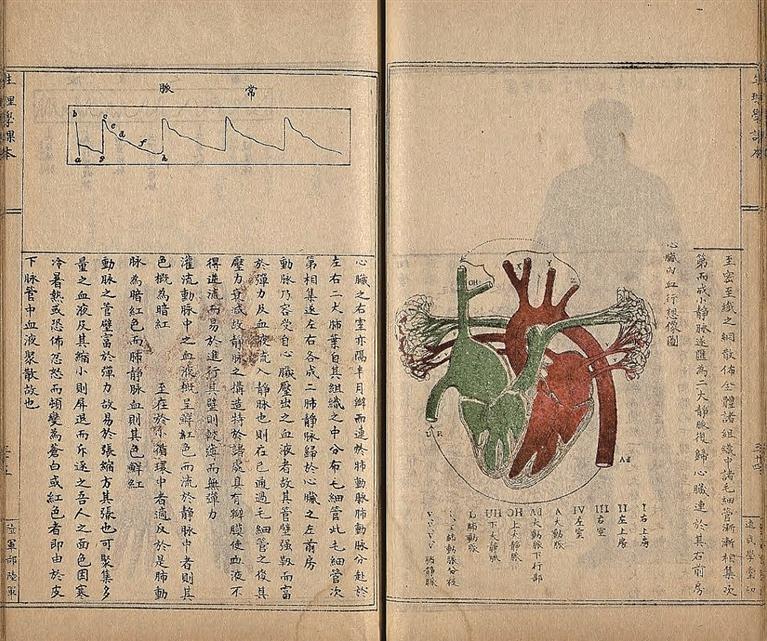 生理學課本
至密至纖之網散佈全體諸組織中諸毛細管漸漸相集次
第而成小靜脈遂匯為二大靜脈復歸心臟連於其右前房
心臟內血行想像圖
OH
Ad
I 右上房
II 左上房
III 右室
IV 左室
A 大動脈
Ad 大動脈下行部
OH 上大靜脈
UH 下大靜脈
L 肺動脈
肺動脈分枝
V.V.V.V. 肺靜脈
常脈
b c e d f
a g h
心臟之右室亦隔半月瓣而連於肺動脈肺動脈分赴於
左右二大肺葉自其組織之中分布毛細管此毛細管次
第相集遂左右各成二肺靜脈歸於心臟之左前房
動脈乃容受自心臟壓出之血液者故其管壁強靱而富
於彈力反血液流入靜脈也則在已通過毛細管之後其
壓力竟或故靜脈之構造特於諸處具有瓣膜使血液不
得逆流而易於進行其壁則較薄而無彈力
灌流動脈中之血液概呈鮮紅色而流於靜脈中者則其
色概為暗紅 至在於小循環中者適反於是肺動
脈為暗紅色而肺靜脈血則其色鮮紅
動脈之管壁富於彈力故易於張縮方其張也可聚集多
量之血液及其縮小則屏退而斥逐之吾人之面色因寒
冷暑熱或恐佈忿怒而頓變為蒼白或紅色者即由於皮
下脈管中血液聚散故也
生理學課本
陸軍部陸軍